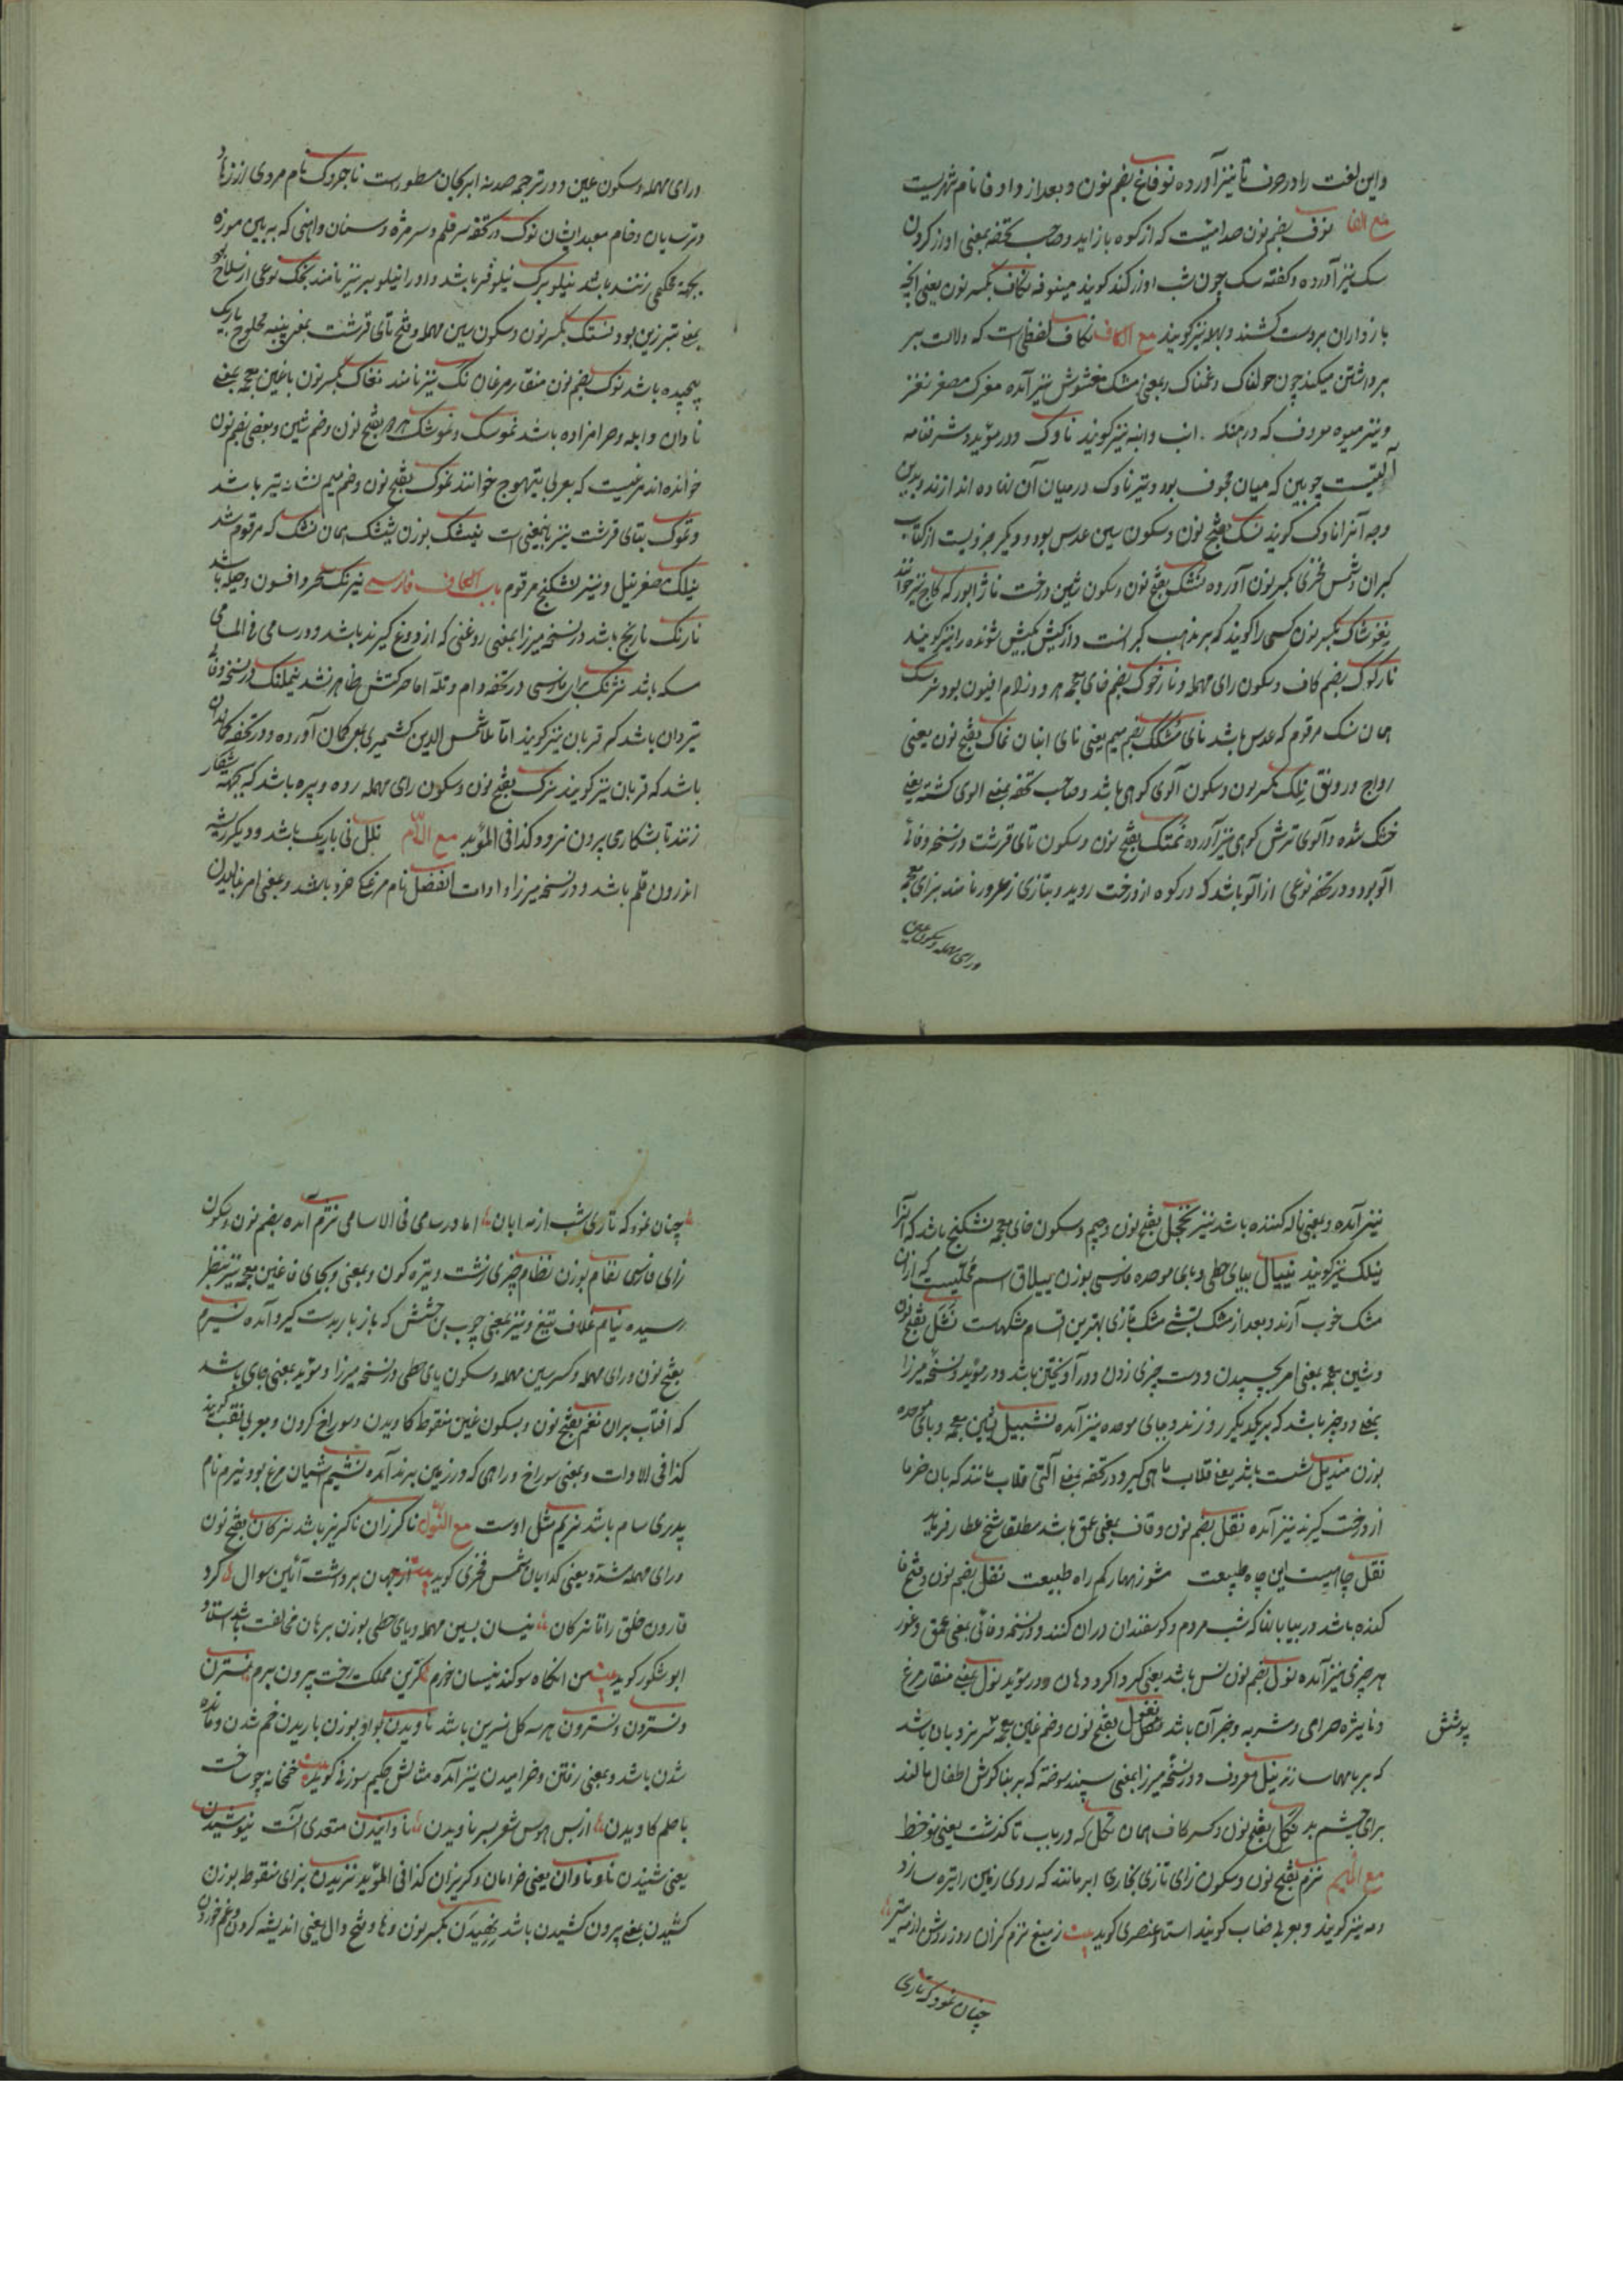 واین لغت را در حرف تا نیز آورده نوفاغ بضم نون و بعد از واو فا نام شهریست
مع الفا نوف بضم نون صدائیست که از کوه باز اید وصاحب تحفه بمعنی اواز کردن
سک نیز آورده وگفته سک چون شب اواز کند کویند مینوفه نکاف بکسر نون یعنی انچه
بازداران بردست کشند وبهله نیز کویند مع الکاف ناک لفظی است که دلالت بر
برداشتن میکند چون هولناک وغمناک وبمعنی مشک مغشوش نیز آمده نغزک مصغر نغز
ونیز میوه معروف که در هند انب وانبه نیز کویند ناوک ودر مؤید وشرفنامه
آلتیست چوبین که میان مجوف بود وتیر ناوک در میان آن نهاده اندازند وبدین
وجه آنرا ناوک کویند نسک بفتح نون وسکون سین عدس بود ودیگر جزویست از کتاب
کبران وشمس فخری بکسر نون آورده نشک بفتح نون وسکون شین درخت ناژ بود که کاج نیز خوانند
نغوشاک بکسر نون کسی را کویند که بر مذهب کبرانست واز کیش بکیش شونده را نیز کویند
نارکوک بضم کاف وسکون رای مهمله ونارخوک بضم خای معجمه هر دو نام افیون بود نرسک
همان نسک مرقوم که عدس باشد نای مشک بضم میم یعنی نای انبان نماک بفتح نون یعنی
رواج ورونق نلک بکسر نون وسکون آلوی کوهی باشد وصاحب تحفه بمعنی الوی کشته یعنی
خشک شده وآلوی ترش کوهی نیز آورده نمتک بفتح نون وسکون تای قرشت ودر نسخه وفائی
آلو بود ودر تحفه نوعی از آلو باشد که در کوه از درخت روید وبتازی زعرور نامند بزای معجمه
ورای مهمله وسکون عین
ورای مهمله وسکون عین ودر ترجمه صیدنه ابوریحان مسطورست ناجروک نام مردی از زهاد
وترسایان وخام معبد ایشان نوک در تحفه سر قلم وسر مژه وسنان واهنی که به پایین موزه
بجهة محکمی زنند باشد نیلوبرک نیلوفر باشد واو را نیلوپر نیز نامند نجک نوعی از سلاح
بمعنی تبرزین بود نستک بکسر نون وسکون سین مهمله وفتح تای قرشت بمعنی پنبه محلوج باریک
پیچیده باشد نوک بضم نون منقار مرغان نک نیز نامند نغاک بکسر نون باغین معجمه بمعنی
نادان وابله وحرامزاده باشد نموسک ونموشک هر دو بفتح نون وضم شین وبعضی بضم نون
خوانده اند مرغیست که بعربی تیهوج خوانند نموک بفتح نون وضم میم نشانه تیر باشد
ونموک بتای قرشت نیز باینمعنی است نیشک بوزن بیشک همان نشک که مرقوم شد
نیلک مصغر نیل ونیز نشکنج مرقوم باب الکاف فارسی نیرنک سحر وافسون وحیله باشد
نارنک نارنج باشد در نسخه میرزا بمعنی روغنی که از دوغ کیرند باشد ودر سامی فی الاسامی
مسکه باشد نزنک بزای پارسی در تحفه دام وتله اما حرکتش ظاهر نشد نیملنک در نسخه وفائی
تیردان باشد که قربان نیز کویند اما ملا شمس الدین کشمیری بمعنی کمان آورده ودر تحفه کماندان
باشد که قربان نیز کویند نرک بفتح نون وسکون رای مهمله رده وپره باشد که بجهة شکار
زنند تا شکاری بیرون نرود وکذا فی المؤید مع اللام نلل نی باریک باشد ودیکر ریشه
اندرون قلم باشد ودر نسخه میرزا وادات الفضل نام مرغکی خرد باشد وبمعنی امر بنالیدن
نیز آمده وبمعنی ناله کننده باشد نیز نخجل بفتح نون وجیم وسکون خای معجمه نشکنج باشد که آنرا
نیلک نیز کویند نیپال بیای حطی وبای موحده فارسی بوزن ییلاق اسم محلیست که ازان
مشک خوب آرند وبعد از مشک تبتی مشک تازی بهترین اقسام مشکهاست نشل بفتح نون
وشین معجمه بمعنی امر بچسپیدن ودست چیزی زدن ودر آویختن باشد ودر مؤید ونسخه میرزا
بمعنی دو چیز باشد که بر یکدیکر روزند وبجای موحده نیز آمده نشبیل بشین معجمه وبای موحده
بوزن مندیل شست باشد یعنی قلاب ماهی کیر ودر تحفه بمعنی آلتی قلاب مانند که بان خرما
از درخت کیرند نیز آمده نقل بضم نون وقاف بمعنی عمق باشد مطلقا شیخ عطار فرماید
نقل چاهیست این چاه طبیعت مشو زنهار کم راه طبیعت نفل بضم نون وفتح فا
کنده باشد در بیابانها که شب مردم وکوسفندان دران کنند ودر نسخه وفائی بمعنی عمق وغور
هر چیزی نیز آمده نول بضم نون نس باشد یعنی کرد اکرد دهان ودر مؤید نول بمعنی منقار مرغ
ونایزه صراحی ومشربه وجز آن باشد نغل بفتح نون وضم غین معجمه شریزدبان باشد
پوشش
که بر بامها سازند نیل معروف ودر نسخه میرزا بمعنی سپند سوخته که بر بناکوش اطفال مالند
برای چشم بد نکل بفتح نون وکسر کاف همان تکل که در باب تا گذشت یعنی نوخط
مع المیم نزم بفتح نون وسکون زای تازی بخاری ابر مانند که روی زمین را تیره سازد
ومه نیز کویند وبعربی ضباب کویند استاد عنصری کوید بیت زمیغ نزم کران روز روشن از مه تیر
چنان نمود که تاری
چنان نمود که تاری شب از مه ابان اما در سامی فی الاسامی نژم آمده بضم نون وسکون
زای فارسی نغام بوزن نظام چیزی زشت وتیره کون وبمعنی وبجای فا غین معجمه نیز بنظر
رسیده نیام غلاف تیغ ونیز بمعنی چوب بن جشش که باز یار بدست کیرد آمده نسیرم
بفتح نون ورای مهمله وکسر سین مهمله وسکون یای حطی در نسخه میرزا ومؤید بمعنی جای باشد
که افتاب بران نغم بفتح نون وبسکون غین منقوط کاویدن وسوراخ کردن وبعربی نقب کویند
کذا فی الادات وبمعنی سوراخ وراهی که در زمین برند آمده نشیم آشیان مرغ بود نیرم نام
پدری سام باشد نریم مثل اوست مع النون ناکرزان ناکریز باشد نرکان بفتح نون
ورای مهمله مشدد یعنی کدایان شمس فخری کوید بیت از جهان برداشت آئین سوال کرد
قارون خلق را تا نرکان نیسان بسین مهمله ویای حطی بوزن برهان مخالفت باشد استاد
ابو شکور کوید بیت من انکاه سوکند نیسان خورم کزین مملکت رخت بیرون برم نسترن
ونسترون ونسترون هرسه کل نسرین باشد ناویدن بواو بوزن باریدن خم شدن ومانده
شدن باشد وبمعنی رفتن وخرامیدن نیز آمده مثالش حکیم سوزنی کوید خمخانه چو ساخت
با علم کاویدن از بس هوس شعر بسر ناویدن ناوانیدن متعدی آنست نیوشیدن
یعنی شنیدن ناونا وان یعنی خرامان وکریزان کذا فی المؤید نزیدن بزای منقوط بوزن
کشیدن بمعنی بیرون کشیدن باشد نهیدن بکسر نون وها وفتح دال یعنی اندیشه کردن وغم خوردن